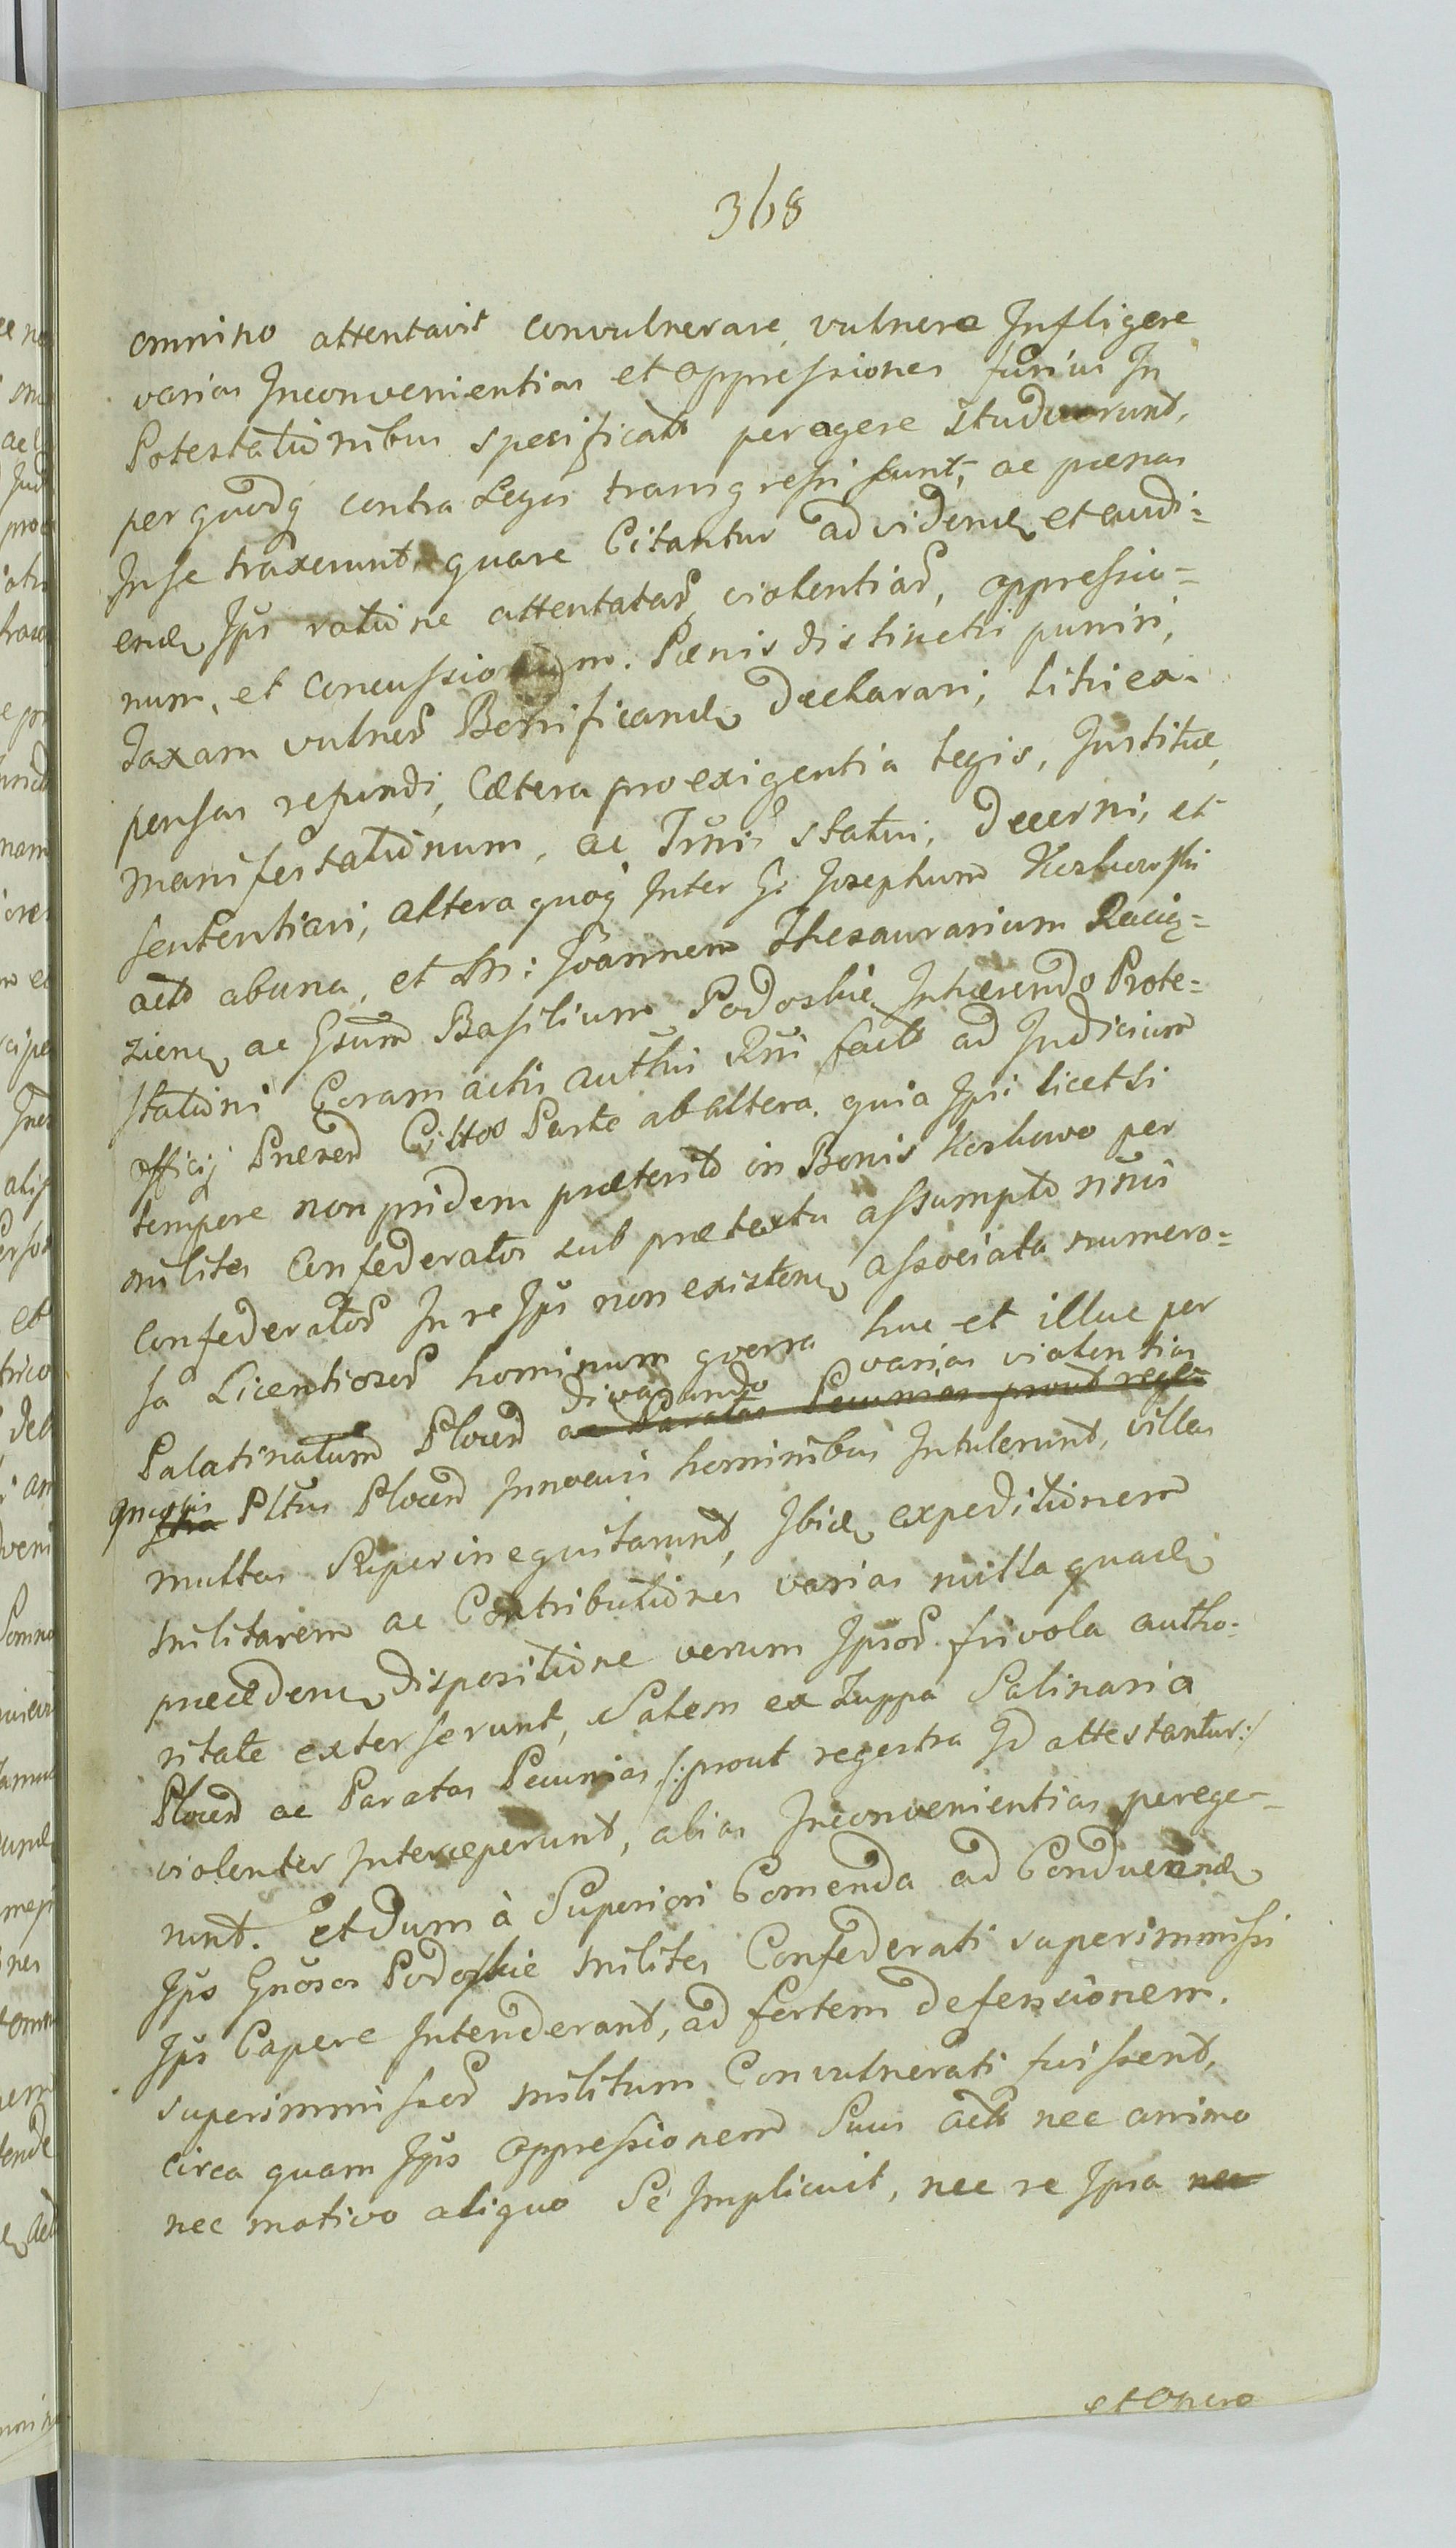 368
omnino attentavit convulnerare, vulnera Infligere
varias Inconvenientias et oppressiones fusius In
Potestationibus specificatas peragere studuerunt,
per quodq contra Leges transgressi sunt, ac pænas
In se traxerunt, quare Citantur ad videnđ et audi=
enđ Ipŝ ratione attentatar violentiar, oppressio=
num, et concussionum. Pænis distinctis puniri,
Taxam vulner Bonificanđ declarari, litis ex=
pensas refundi, Cætera pro exigentia legis, Justitiæ,
Manifestationum, ac statui, decerni, et
sententiari, altera quoq Inter G: Josephum Koskowski
act ab una, et M: Joannem Thesaurarium Raciąż=
ac Gsum Basilium Podoskie Inhærendo Prote=
stationi Coram actis authis fact ad Judicium
officij Præsen Parte ab altera. quia Ipsi licet hi
tempore non pridem præterito in Bonis Koskowo per
milites Confederatos sub prætextu assumpto
Confederator In re Ipŝ non existen associata numero=
sa Licentiosor hominum gverra huc et illuc per
divagando varias violentias
Palatinatum Plocen ac Paratas Pecunias prout
Pltus Plocen Innocuis hominibus Intulerunt, villas
multas Superinequitarunt, Ibiq expeditionem
militarem ac Contributiones varias nulla quaq
præceden dispositione verum Ipsor frivola autho=
ritate exterserunt, Salem ex Zuppa Salinaria
Plocen ac Paratas Pecunias /: prout regestra Id attestantur :/
violenter Interceperunt, alias Inconvenientias perege=
runt. Et dum à Superiori Comenda ad Conducenđ
Ipŝ Gnosos Podoskie milites Confederati superimmissi
Ipŝ Capere Intenderant, ad fortem defensionem.
superimmissor militum Convulnerati fuissent,
circa quam Ipŝ oppressionem Suus act nec animo
nec motivo aliquo Se Implicuit, nec re Ipsa nec
et Opere